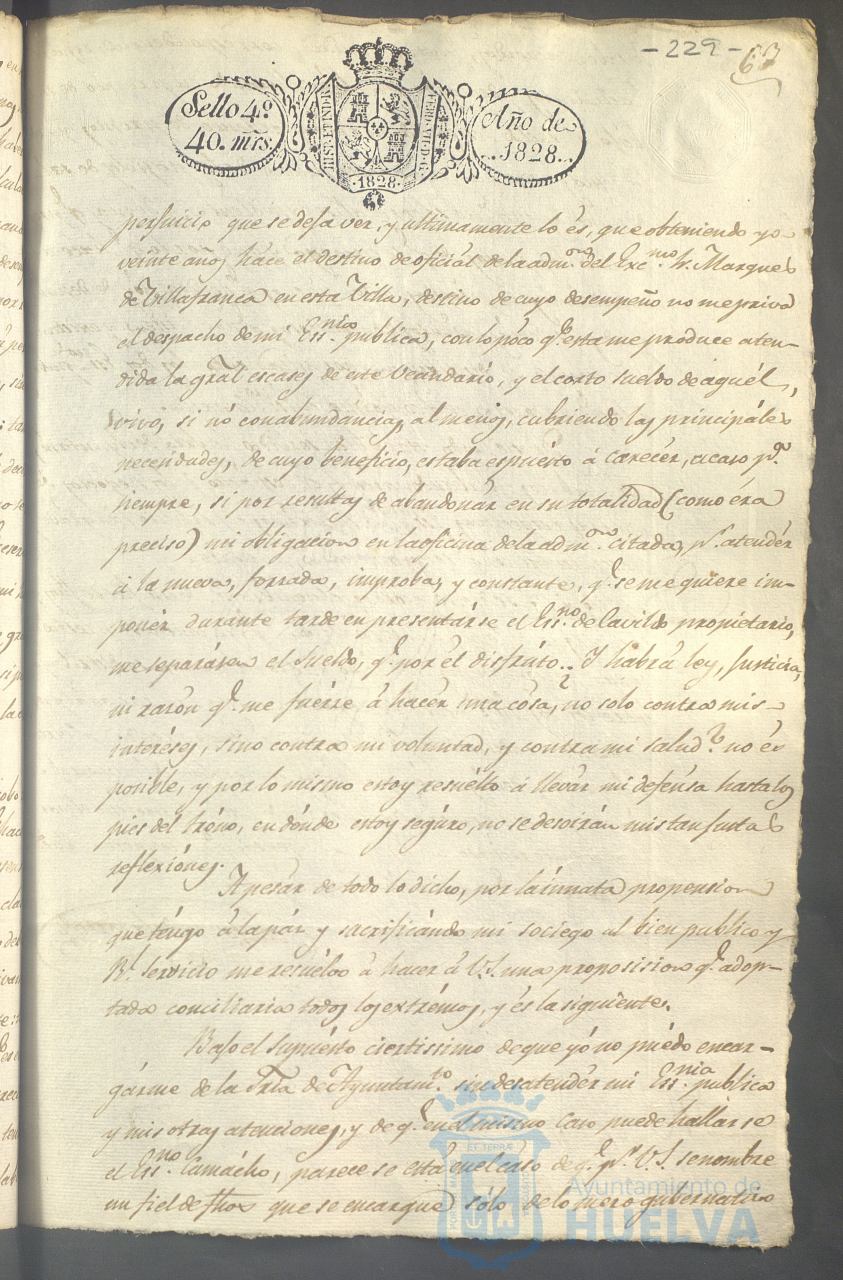 - 229 - 63
Sello 4º.
40. mrs.
HISP. ET IND. R.
FERD. VII. D. G.
·1828·
Año de
1828.
perjuicio que se deja ver, y ultimamente lo és, que obteniendo yo
veinte años hace el destino de oficial de la adm.on del Exc.mo S.r Marques
de Villafranca en esta Villa, destino de cuyo desempeño no me priva
el despacho de mi Ess.nia publica, con lo póco q.e esta me produce aten-
dida la gral escases de este Vecindario, y el corto sueldo de aquél,
vivo, si nó con abundáncia, al menos, cubriendo las principáles
necesidades, de cuyo beneficio, estaba espuésto á carecér, acaso p.a
siempre, si por resultas de abandonár en su totalidad (como éra
preciso) mi obligacion en la oficina de la adm.on citada, p.a atendér
á la nueva, forzada, improba, y constante, q.e se me quiere im-
ponér durante tarde en presentárse el Ess.no de Cavildo propietario,
me separásen el sueldo, q.e por él disfrúto.. Y habrá ley, Justicia,
ni razón q.e me fuérze á hacér una cósa, no solo contra mis
interéses, sino contra mi voluntad, y contra mi salud? no és
posible, y por lo mismo estoy resuélto á llevár mi defénsa hasta los
pies del tróno, en dónde estoy segúro, no se desoirán mis tan justas
reflexiónes.
Apesár de todo lo dicho, por la innata propension
que téngo á la páz y sacrificándo mi sociego al bien publico y
R.l Servicio me resuélvo á hacér á V.S. una proposision q.e adop-
tada conciliaria todos los extrémos, y és la siguiénte.
Bajo el supuésto ciertissimo de que yó no puédo encar-
gárme de la Sria de Ayuntam.to sin desatendér mi Ess.nia publica
y mis otras atenciónes, y de q.e en el mismo Caso puede hallarse
el Ess.no Camácho, parece se está en el cáso de q.e p.r V.S. se nombre
un fiel de fhos que se encargue sólo de lo mero gubernativo
Ayuntamiento de
HUELVA